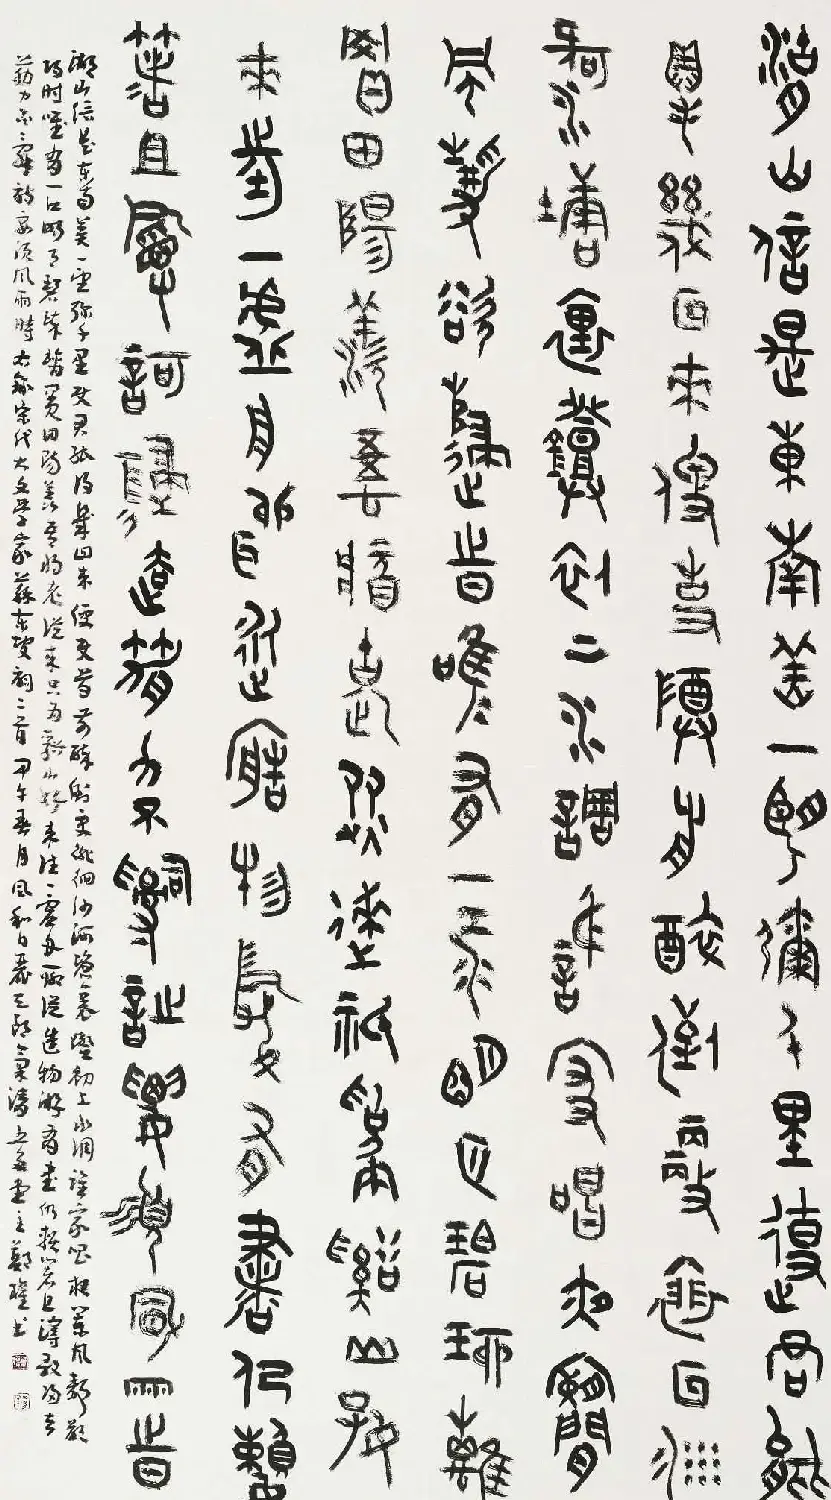 湖山信是東南美一望彌千里使君能
得幾回來便使尊前醉倒更徘徊沙
河塘裏燈初上水調誰家唱夜闌
風靜欲歸時唯有一江明月碧琉璃
買田陽羨吾將老從來祇為谿山好
來往一虛舟聊從造物遊有書仍懶
著且漫歌歸去筋力不辭詩要須風雨時
湖山信是東南美一望彌千里使君能得幾回來便使尊前醉倒更徘徊沙河塘裏燈初上水調誰家唱夜闌風靜欲
歸時唯有一江明月碧琉璃買田陽羨吾將老從來只為谿山好來往一虛舟聊從造物遊有書仍懶著且漫歌歸去
筋力不辭詩要須風雨時右錄宋代大文學家蘇東坡詞二首甲午春月風和日麗主鄭書